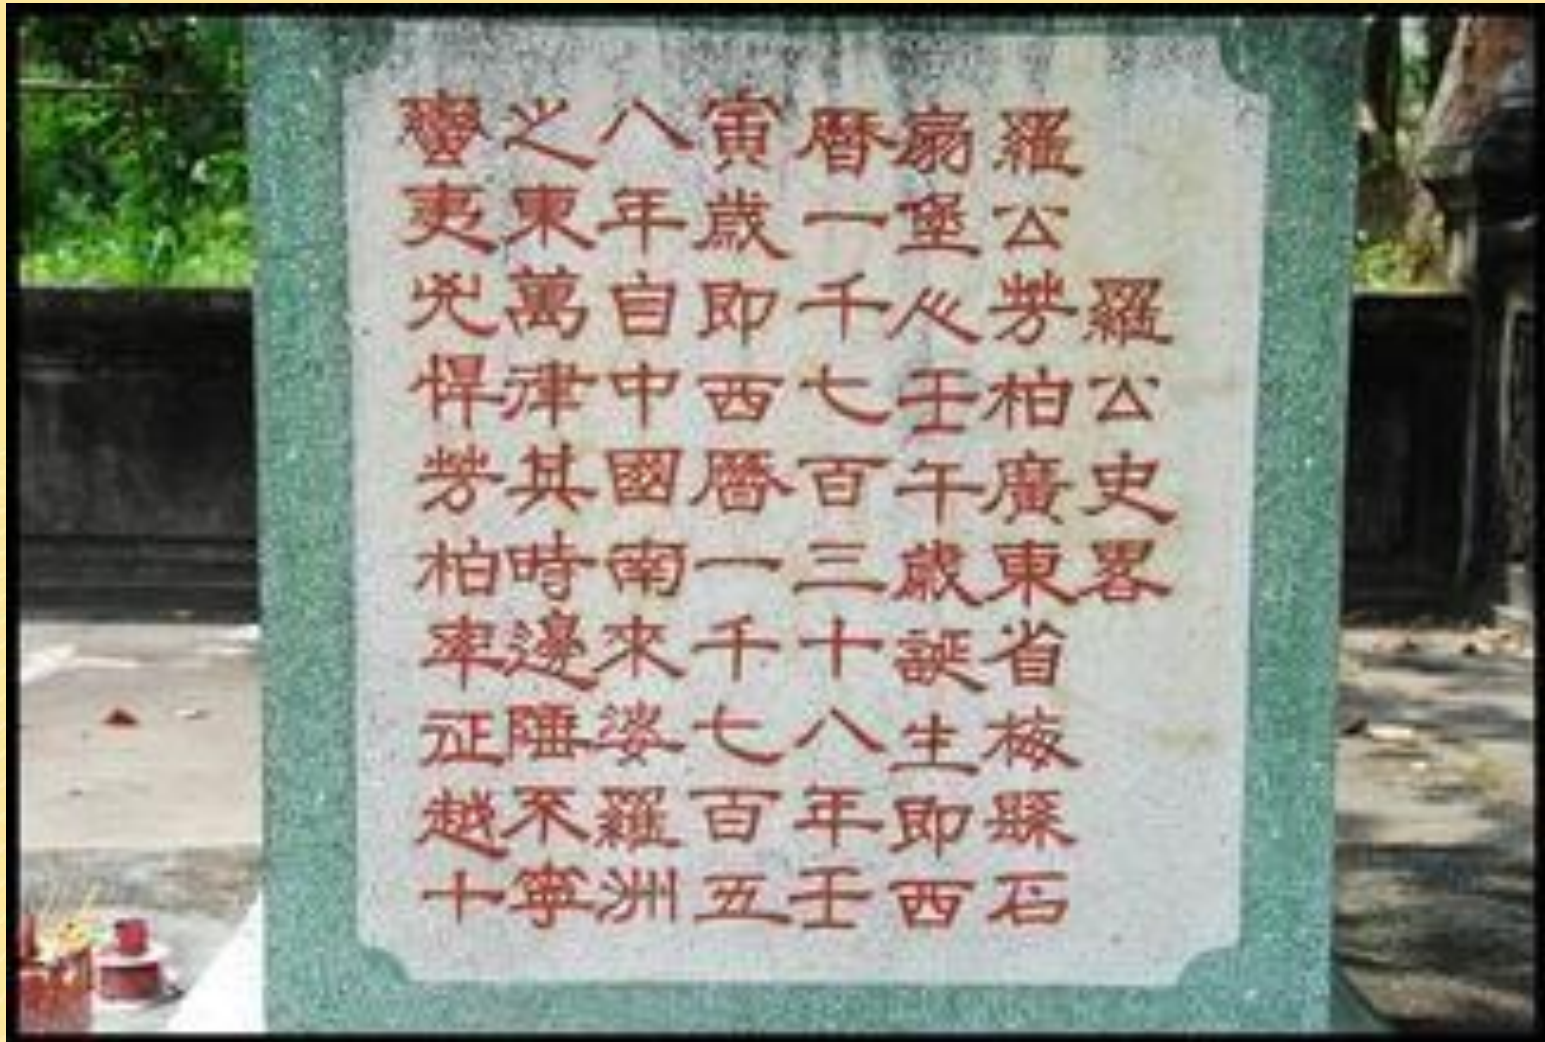 羅公史畧
羅公芳柏廣東省梅縣石
扇堡心壬午歲誕生即西
曆一千七百三十八年壬
寅歲即西曆一千七百五
八年自中國南來婆羅洲
之東萬津其時邊陲不寧
蠻夷兇悍芳柏率征越十